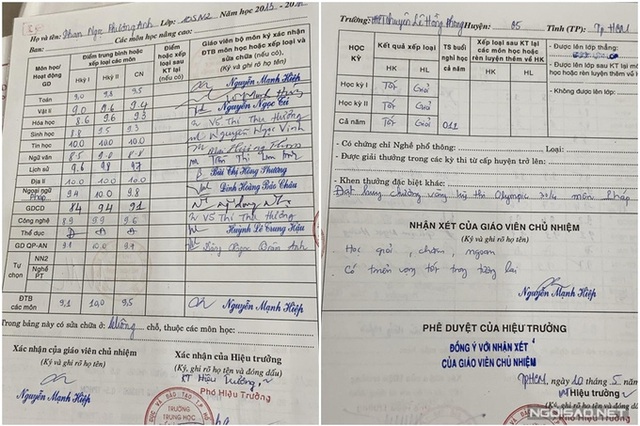 Họ và tên: Phan Ngọc Phương Anh Lớp: 10SN2 Năm học 2015 - 20
Ban: Các môn học nâng cao:
Môn học/ Hoạt động GD
Điểm trung bình hoặc xếp loại các môn
Hkỳ I Hkỳ II CN
Điểm hoặc xếp loại sau KT lại (nếu có)
Giáo viên bộ môn ký xác nhận ĐTB môn học hoặc xếp loại và sửa chữa (nếu có)
(Ký và ghi rõ họ tên)
Toán 9.0 9.5 Nguyễn Mạnh Hiệp
Vật lí 9.0 9.6 9.4 Nguyễn Ngọc Cú
Hóa học 8.6 9.6 9.3 Võ Thị Thu Hương
Sinh học 8.8 9.5 9.3 Nguyễn Ngọc Vinh
Tin học 10.0 10.0 10.0
Ngữ văn 8.5 8.8
Lịch sử 9.6 9.8 9.7 Bùi Thị Hồng Phương
Địa lí 10.0 10.0 10.0
Ngoại ngữ Pháp 9.4 10.0 9.8 Đinh Hoàng Bảo Châu
GDCD 8.4 9.4 9.1
Công nghệ 8.9 9.9 9.6 Võ Thị Thu Hương
Thể dục Đ Đ Đ Huỳnh Lê Trung Hậu
GD QP-AN 9.1 10.0 Anh
Tự chọn
NN2
Nghề PT
ĐTB các môn 9,1 10,0 9,5 Nguyễn Mạnh Hiệp
Trong bảng này có sửa chữa ở: không chỗ, thuộc các môn học:
Xác nhận của giáo viên chủ nhiệm
(Ký và ghi rõ họ tên)
Nguyễn Mạnh Hiệp
Xác nhận của Hiệu trưởng
(Ký, ghi rõ họ tên và đóng dấu)
KT Hiệu trưởng
Phó Hiệu Trưởng
TRƯỜNG
TRUNG HỌC
Trường: Chuyên Lê Hồng Phong Huyện: Q5 Tỉnh (TP): Tp HCM
HỌC KỲ
Kết quả xếp loại
HK HL
TS buổi nghỉ học cả năm
Xếp loại sau KT lại các môn học hoặc rèn luyện thêm về HK
HK HL
- Được lên lớp thẳng:
- Được lên lớp sau KT lại môn học hoặc rèn luyện thêm về HK:
- Không được lên lớp:
Học kỳ I Tốt Giỏi
Học kỳ II Tốt Giỏi
Cả năm Tốt Giỏi
- Có chứng chỉ Nghề phổ thông: Loại:
- Được giải thưởng trong các kỳ thi từ cấp huyện trở lên:
- Khen thưởng đặc biệt khác:
Đạt huy chương vàng kỳ thi Olympic 30/4 môn Pháp
NHẬN XÉT CỦA GIÁO VIÊN CHỦ NHIỆM
(Ký và ghi rõ họ tên)
Học giỏi, chăm, ngoan
Có triển vọng tốt trong tương lai
Nguyễn Mạnh Hiệp
PHÊ DUYỆT CỦA HIỆU TRƯỞNG
ĐỒNG Ý VỚI NHẬN XÉT
CỦA GIÁO VIÊN CHỦ NHIỆM
TpHCM, ngày 20 tháng 5 năm
Hiệu trưởng
(Ký, ghi rõ họ tên và đóng dấu)
NGOISAO.NET